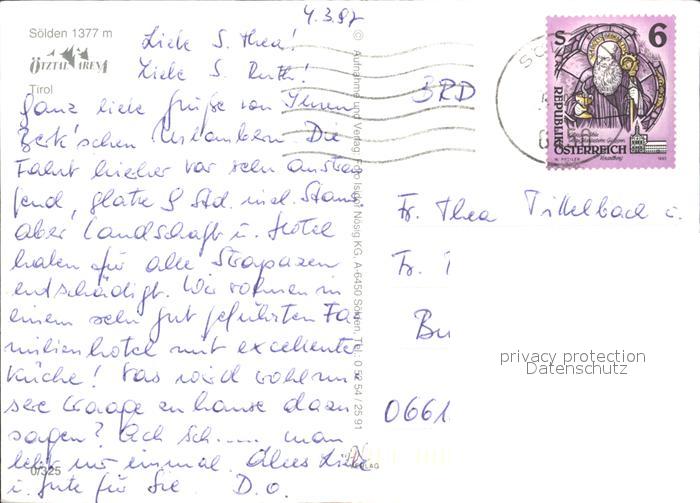 4.3.97
Sölden 1377 m
ÖTZTAL ARENA
Tirol
Liebe S. Thea!
Liebe S. Ruth!
Ganz liebe Grüße von Ihren
Berk'schen Urlaubern. Die
Fahrt hieher war sehr anstren
gend, glatte 9 Std. incl. Staus.
aber Landschaft u. Hotel
haben für alle Strapazen
entschädigt. Wir wohnen in
einem sehr gut geführten Fa
milienhotel mit excellenter
Küche! Was wird wohl un
sere Waage zu hause dazu
sagen? Ach Sch.... man
lebt nur einmal. Alles Liebe
u. Gute für Sie D.O.
0/325
© Aufnahme und Verlag: Foto Isidor Nösig KG, A-6450 Sölden, Tel.: 0 52 54 / 25 91
VERLAG
BRD
S 6
REPUBLIK
ÖSTERREICH
Fr. Thea Tittelbach u.
Fr.
Bu
0661
privacy protection
Datenschutz